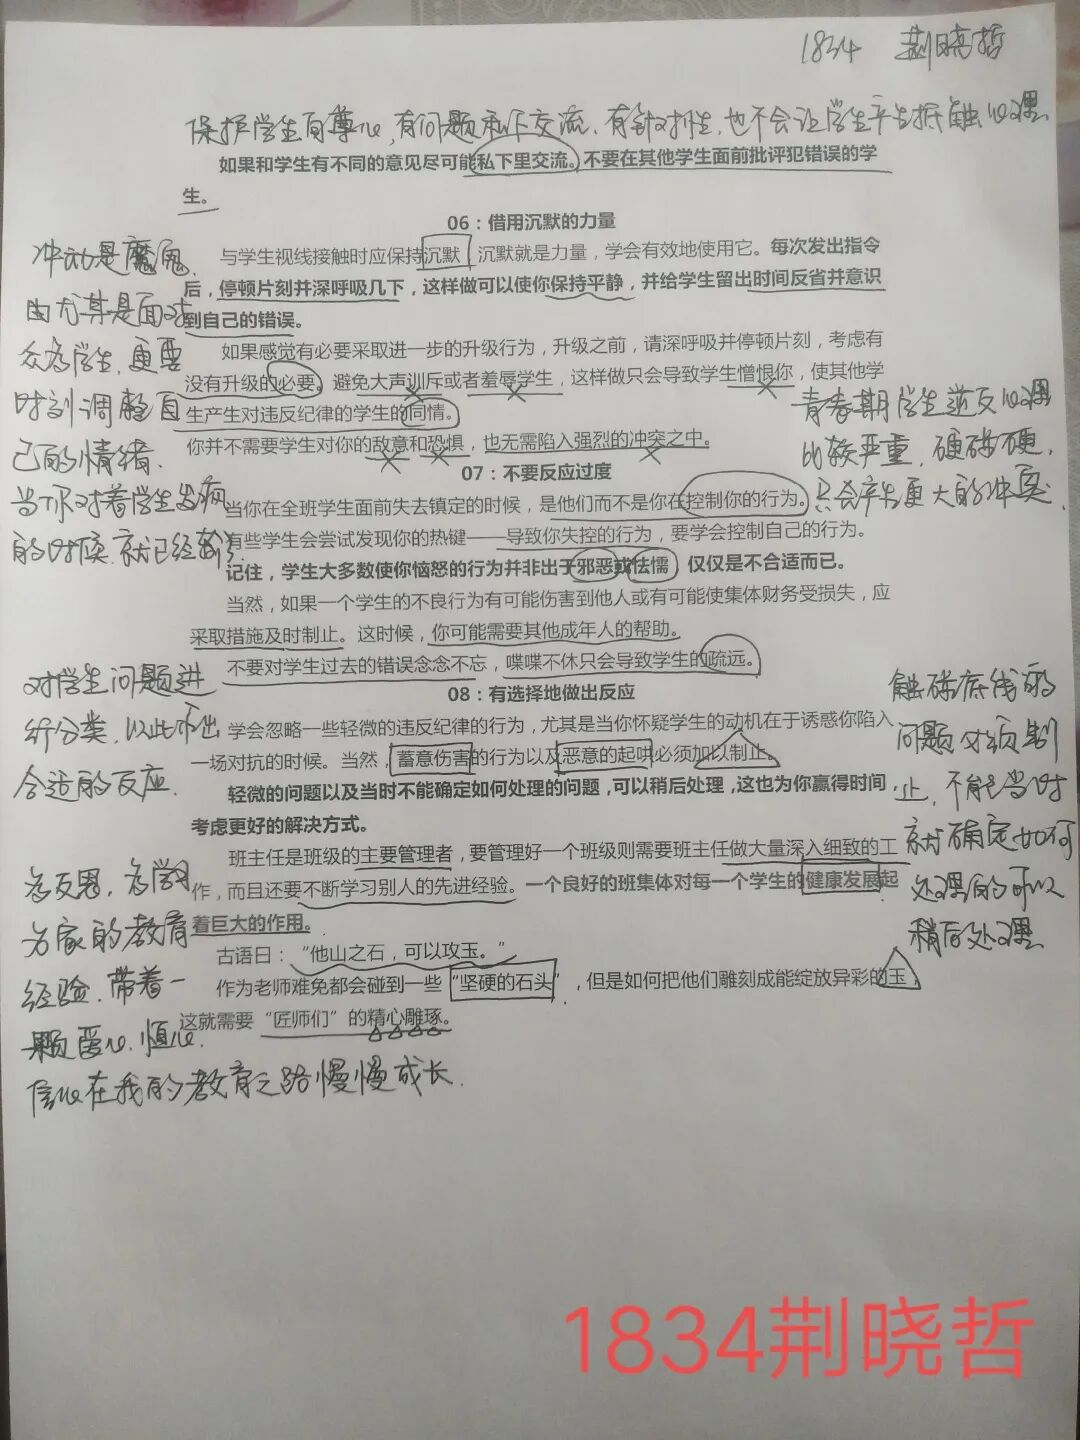 1834 荆晓哲
保护学生自尊心,有问题私下交流、有针对性,也不会让学生产生抵触心理
如果和学生有不同的意见尽可能私下里交流。不要在其他学生面前批评犯错误的学
生。
06：借用沉默的力量
与学生视线接触时应保持沉默 沉默就是力量，学会有效地使用它。每次发出指令
后，停顿片刻并深呼吸几下，这样做可以使你保持平静，并给学生留出时间反省并意识
到自己的错误。
如果感觉有必要采取进一步的升级行为，升级之前，请深呼吸并停顿片刻，考虑有
没有升级的必要。避免大声训斥或者羞辱学生，这样做只会导致学生憎恨你，使其他学
生产生对违反纪律的学生的同情。
你并不需要学生对你的敌意和恐惧，也无需陷入强烈的冲突之中。
冲动是魔鬼.
尤其是面对
众多学生,更要
时刻调整自
己的情绪.
当你对着学生发疯
的时候,就已经输了.
青春期学生逆反心理
比较严重,硬碰硬,
只会产生更大的冲突.
07：不要反应过度
当你在全班学生面前失去镇定的时候，是他们而不是你在控制你的行为。
有些学生会尝试发现你的热键——导致你失控的行为，要学会控制自己的行为。
记住，学生大多数使你恼怒的行为并非出于邪恶或怯懦 仅仅是不合适而已。
当然，如果一个学生的不良行为有可能伤害到他人或有可能使集体财务受损失，应
采取措施及时制止。这时候，你可能需要其他成年人的帮助。
不要对学生过去的错误念念不忘，喋喋不休只会导致学生的疏远。
08：有选择地做出反应
学会忽略一些轻微的违反纪律的行为，尤其是当你怀疑学生的动机在于诱惑你陷入
一场对抗的时候。当然，蓄意伤害的行为以及恶意的起哄必须加以制止。
轻微的问题以及当时不能确定如何处理的问题，可以稍后处理，这也为你赢得时间，
考虑更好的解决方式。
对学生问题进
行分类,以此作出
合适的反应.
触碰底线的
问题必须制
止,不能当时
就确定如何
处理的可以
稍后处理
班主任是班级的主要管理者，要管理好一个班级则需要班主任做大量深入细致的工
作，而且还要不断学习别人的先进经验。一个良好的班集体对每一个学生的健康发展起
着巨大的作用。
古语曰：“他山之石，可以攻玉。”
作为老师难免都会碰到一些“坚硬的石头”，但是如何把他们雕刻成能绽放异彩的玉，
这就需要“匠师们”的精心雕琢。
多反思,多学习
方家的教育
经验,带着一
颗爱心、恒心、
信心在我的教育之路慢慢成长.
1834荆晓哲